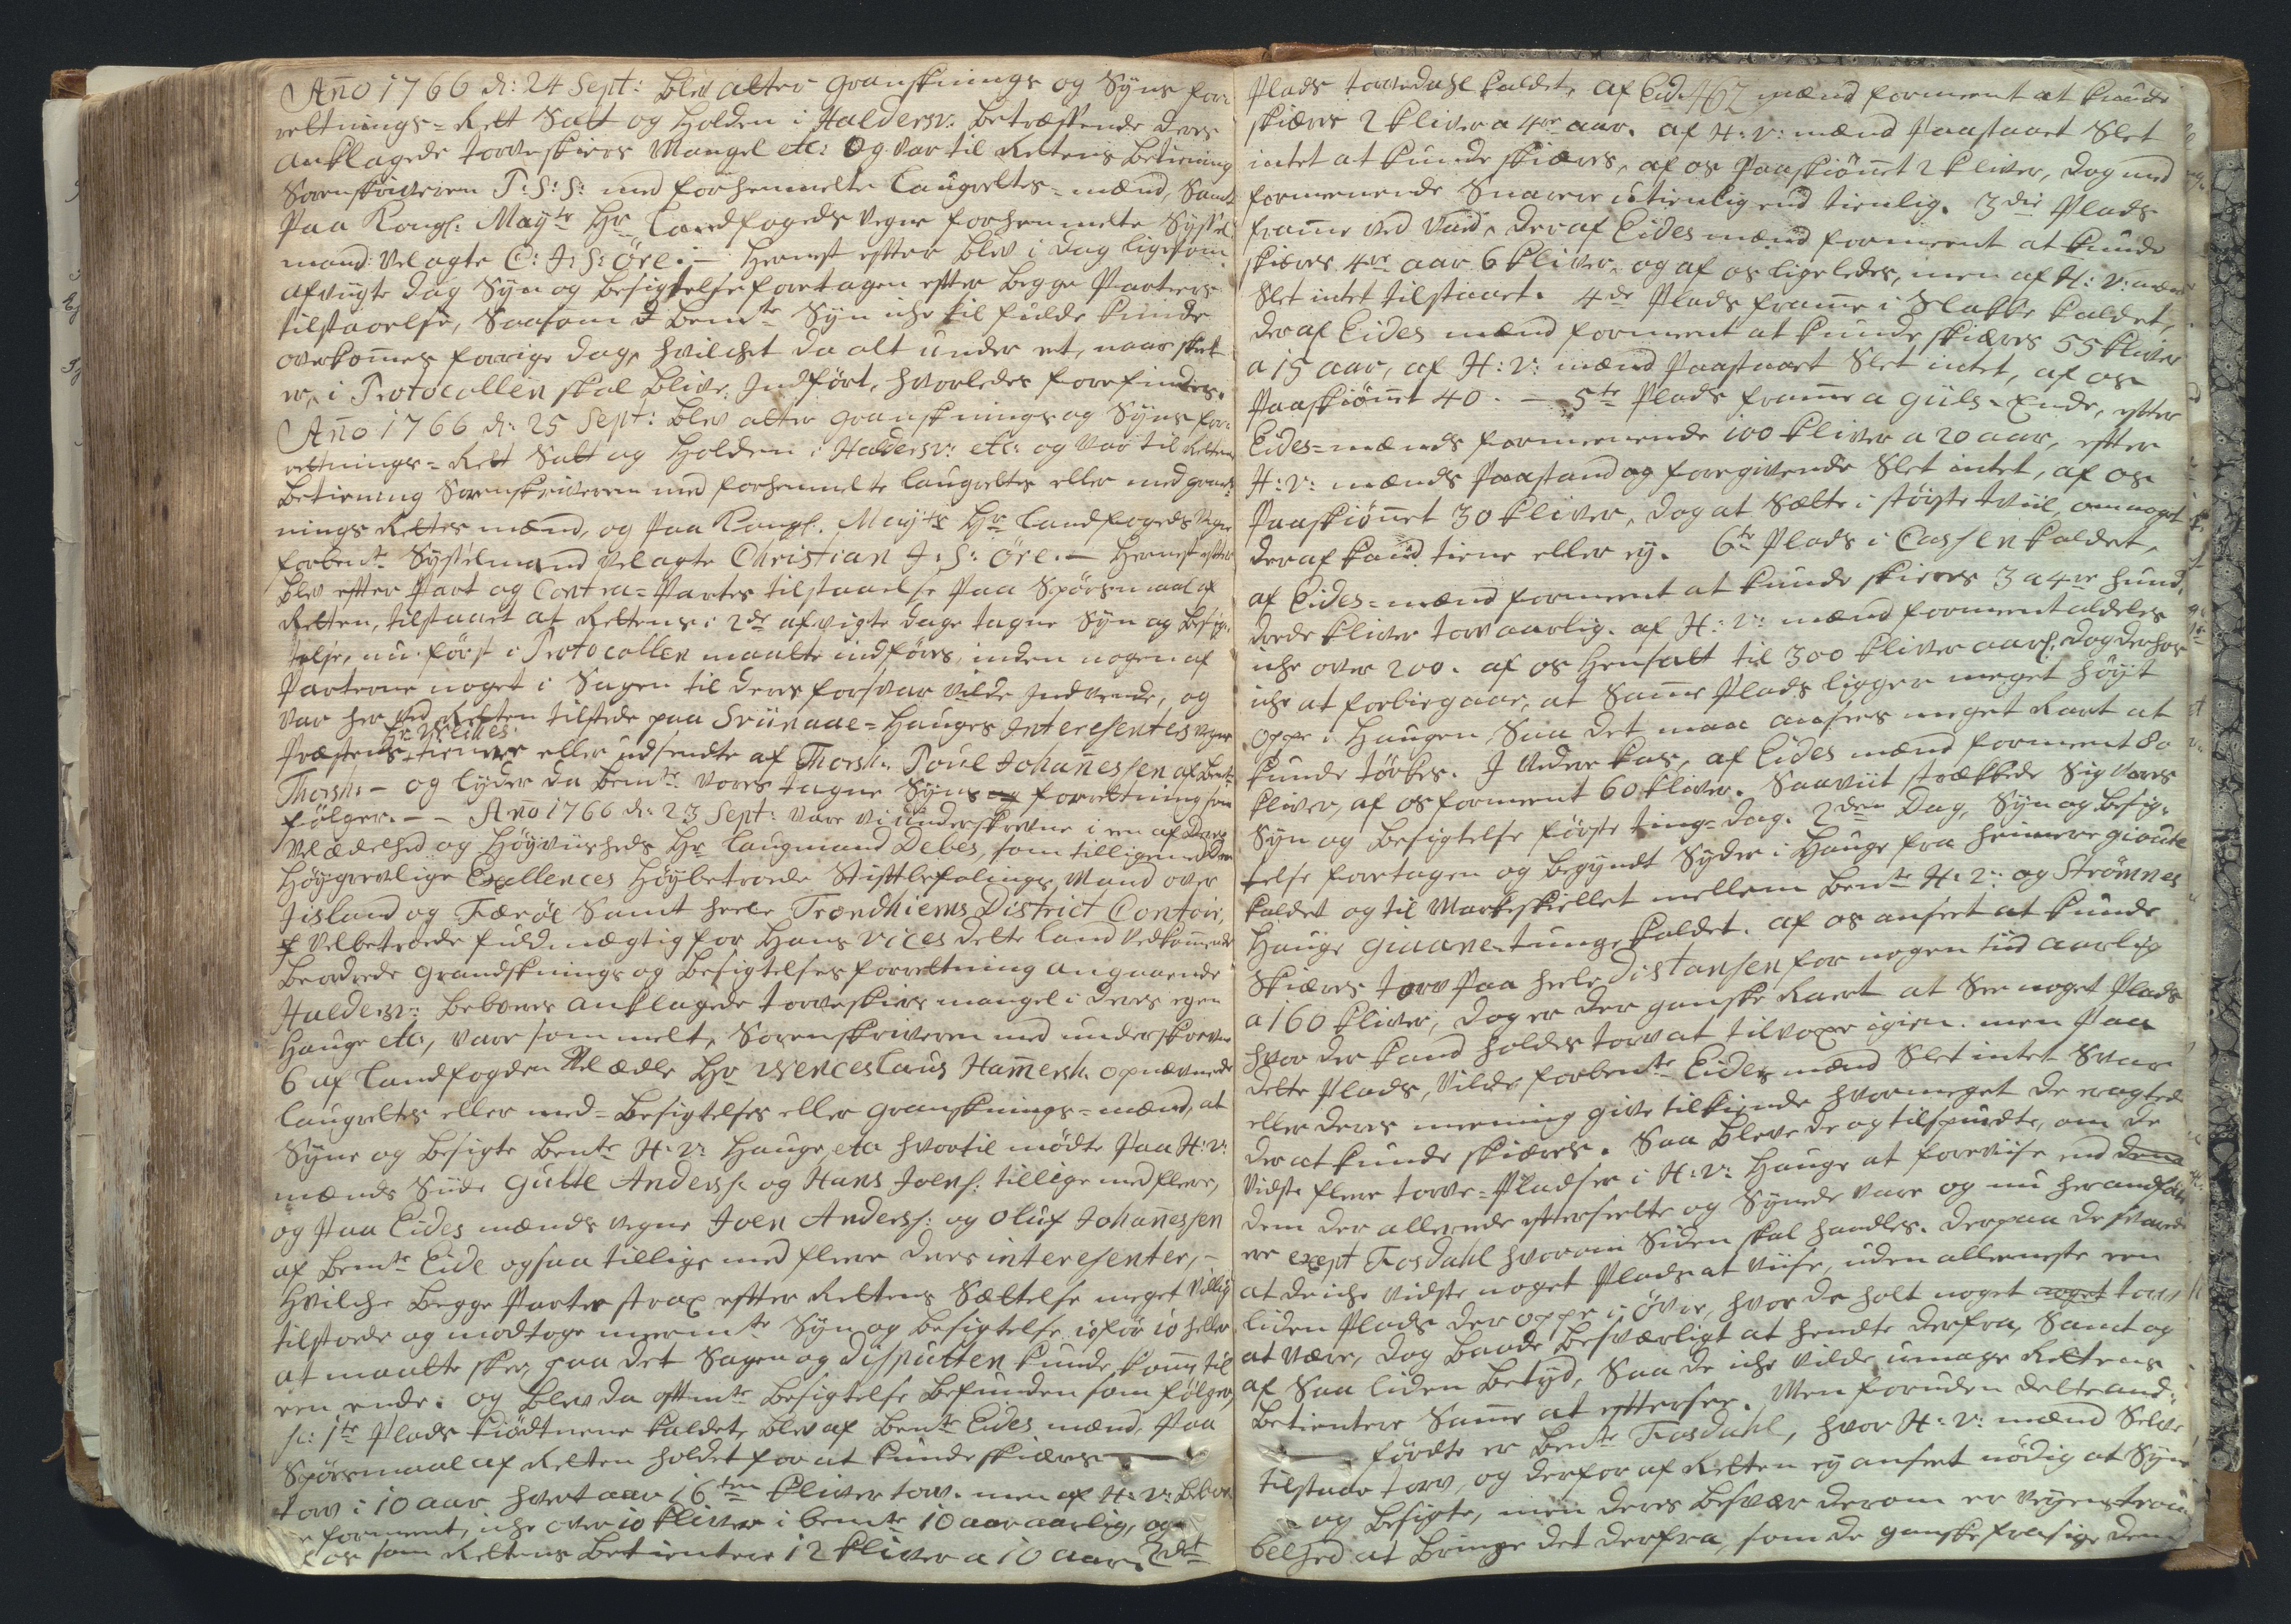 Año 1766 d: 24 Sept: blev atter Gransknings og Syns for¬
retnings-Rett Satt og Holden i Haldersv: betræffende deres
anklagede torveskiers Mangel etc: Og var til Rettens betiening
Sorenskriveren P: S: S: med forhenmelte laugrettes-mænd, Samt
Paa Kongl: Mayts Hr Landfogeds vegne forhenmelte Syssel
mand: Velagte C: J: S: Öre. — Hernest efter blev i dag ligesom
afvigte dag Syn og besigtelse foretagen efter begge Parters
tilstaaelse, Saasom bemte Syn iche til fulde kunde
overkomes forrige dag, hvilchet da alt under et, naar skeet
er, i Protocollen skal blive Indført, hvorledes forefindes.
Año 1766 d: 25 Sept: blev atter Gransknings og Syns for¬
retnings-Rett Satt og Holden i Haldersv: etc: og var til Rettens
betiening Sorenskriveren med forhenmelte laugrettes eller med grandsk¬
nings Rettes mænd, og paa Kongl. Mayts Hr Landfogeds vegne
forbemte Sysselmand Velagte Christian J: S: Öre. — Hernest efter
blev efter Part og Contra-Partes tilstaaelse paa Spörsmaal af
Retten, tilstaaet at Rettens i 2de afvigte dage tagne Syn og besig¬
telse, nu först i Protocollen maatte indföres, inden nogen af
Parterne noget i Sagen til deres forsvar vilde Indvende, og
var her ved Retten tilstede paa Sriinaae-Hauges Interesentes vegne
Hr Weihes
Præstens tiener eller udsendte af Thorsh. Poul Johañessen af bemte
Thorsh: — og lyder da bemte vores tagne Syns forretning som
fölger. — — Año 1766 d: 23 Sept: Vare vi underskrevne i en af Deres
Velædelhed og Höyviisheds Hr Laugmand Debes, som tilligemed Den
Höygrevlige Exellences Höybetroede Stiftbefalings Mand over
Jisland og Færöe Samt heele Trondhiems District Contoir,
Velbetroede fuldmægtig for Hans vices dette land vedkomende
beordrede Grandsknings og besigtelses forretning angaaende
Haldersv: beboeres anklagede torveskiers mangel i deres egen
Hauge etc:, Vare som melt, Sorenskriveren med underskrevne
6 af Landfogden Velædle Hr Wenceslaus Hamersh. opnævnede
laugrettes eller med-besigtelses eller Gransknings-mænd, at
Syne og besigte bemte H: v: Hauge, etc hvortil mödte Paa H: v:
mænds Side Gutte Anderss: og Hans Joens: tillige med flere,
og Paa Eides mænds vegne Joen Anderss: og Oluf Johañessen
af bemte Eide ogsaa tillige med flere deres interesenter,—
Hvilche begge Parter strax efter Rettens Sættelse meget villig
tilstode og modtoge meermte Syn og besigtelse io för io heller
at maatte skee, paa det Sagen og disputten kunde komme til
een ende. og blev da oftmte besigtelse befunden som fölger,
s: 1te Plads Kiödtnene kaldet, blev af bemte Eides mænd, Paa
Spörsmaal af Retten holdet for at kunde skieres —
torv i 10 aar hvert aar 16ten kliver torv. men af H: v: beboe
forment, iche over 10 kliver i bemte 10 aar aarlig, og
os som Rettens betientere 12 kliver a 10 aar. 2det
Plads torvedahl kaldet, af Eides mænd forment at kunde
skiæres 2 kliver a 4re aar. af H: v: mænd Paastaaet Slet
intet at kunde skiæres, af os Paaskiönnet 2 kliver, dog med
formeenende Snarere utienlig end tienlig. 3die Plads
frame ved Vaid, deraf Eides mænd forment at kunde
skiæres 4re aar 6 kliver og af os ligeledes, men af H: v: mænd
Slet intet tilstaaet. 4de Plads frame i Slakke kaldet,
deraf Eides mænd forment at kunde skiæres 55 kliver
a 15 aar, af H: v: mænd Paastaaet Slet intet, af os
Paaskiönet 40. — 5te Plads frame a Giils-Ende, efter
Eides-mænds formeenende 100 kliver a 20 aar, efter
H: v: mænds Paastand og foregivende Slet intet, af os
Paaskiönet 30 kliver, dog at Sætte i störste tviil, om noget
deraf kand tiene eller ey. 6te Plads i Cassen kaldet,
af Eides-mænd forment at kunde skieres 3 a 4re hund¬
drede kliver torv aarlig. af H: v: mænd forment aldeles
iche over 200. af os Hensatt til 300 kliver aarl: dog derhos
iche at forbiegaae, at Same Plads ligger meget höyt
oppe i Haugen, Saa det maa ansees meget Rart at
kunde törkes. I Vedrekas, af Eides mænd forment 80
kliver, af os forment 60 kliver. Saaviit strækkede Sig vores
Syn og besigtelse förste ting-dag. 2den Dag, Syn og besig¬
telse foretagen og begyndt Syder i Hauge fra heimere gioute
kaldet og til Markeskiellet mellem bemte H: v: og Strömnes
Hauge Giaane-tunge kaldet. af os anseet at kunde
skiæres torv paa heele distansen for nogen tiid aarlig
a 160 kliver, dog er der ganske Raert at See noget Plads
hvor der kand holdes torv at tilvoxe igien. men Paa
dette Plads, Vilde forbemte Eides mænd Slet intet Svare
eller deres meening give tilkiende hvormeget de eragtede
der at kunde skiæres. Saa bleve de og tilspurdte, om de
vidste flere torve-Pladser i H: v: Hauge at foreviise end
dem der allerede efterseete og Synede vare og nu herandfört
er except Fosdahl hvorom Siden skal handles. derpaa de svarede
at de iche vidste noget Plads at viise, uden alleneste een
liden Plads der oppe i Över, hvor de holt noget torv
at være, dog baade besværligt at hendte derfra, Samt og
af Saa liden betyd, Saa de iche vilde umage Rettens
betientere Same at efterseee. Men foruden dette and¬
förte er bemte Fosdahl, hvor H: v: mænd Selve
tilstaae torv, og derfor af Retten ey anseet nödig at Syne
og besigte, men deres besvær derom er veyens
belhed at bringe det derfra, som de ganske frasige dem